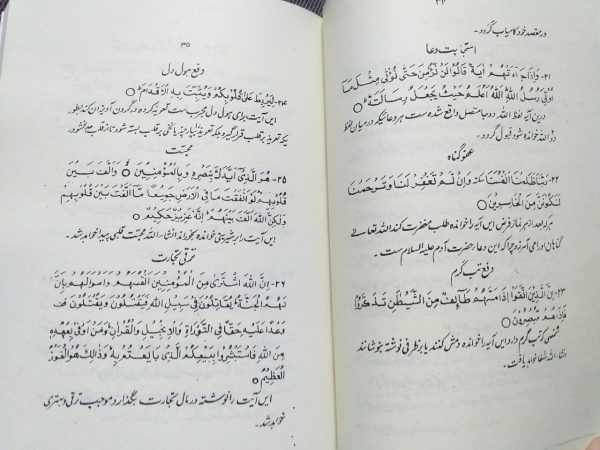 ۳۴
در مقصد خود کامیاب گردد۔
استجابت دعا
۲۱- وَاِذَا جَاءَتْهُمْ اٰیَةٌ قَالُوْا لَنْ نُّؤْمِنَ حَتّٰى نُؤْتٰى مِثْلَ مَا
اُوْتِیَ رُسُلُ اللّٰهِ اَللّٰهُ اَعْلَمُ حَیْثُ یَجْعَلُ رِسَالَتَهٗ ○
درین آیه لفظ الله دو جا متصل واقع شده ست هر دعا که درمیان لفظ
دو الله خوانده شود قبول گردد۔
عفو گناه
۲۲- رَبَّنَا ظَلَمْنَا اَنْفُسَنَا وَاِنْ لَّمْ تَغْفِرْ لَنَا وَتَرْحَمْنَا
لَنَكُوْنَنَّ مِنَ الْخَاسِرِیْنَ ○
هر که بعد از هر نماز فرض این آیه را خوانده طلب مغفرت کند الله تعالے
گناهان او را می آمرزد چرا که این دعاء حضرت آدم علیه السلام ست۔
دفع تپ گرم
۲۳- اِنَّ الَّذِیْنَ اتَّقَوْا اِذَا مَسَّهُمْ طَآئِفٌ مِّنَ الشَّیْطٰنِ تَذَكَّرُوْا
فَاِذَا هُمْ مُّبْصِرُوْنَ ○
شخصی که تپ گرم دارد این آیه را خوانده دمش کنند یا بر ظرفی نوشته بنوشانند
انشاء الله شفا خواهد یافت۔
۳۵
دفع هول دل
۲۴- لِیَرْبِطَ عَلٰى قُلُوْبِكُمْ وَیُثَبِّتَ بِهِ الْاَقْدَامَ ○
این آیت برای هول دل مجرب ست تعویذ کرده در گردن آویزان کند بطور
یکه تعویذ بر قلب قرار گیرد بلکه تعویذ بر قلب بسته شود تا از قلب جدا نشود۔
محبت
۲۵- هُوَ الَّذِیْ اَیَّدَكَ بِنَصْرِهٖ وَبِالْمُؤْمِنِیْنَ ○ وَاَلَّفَ بَیْنَ
قُلُوْبِهِمْ لَوْ اَنْفَقْتَ مَا فِی الْاَرْضِ جَمِیْعًا مَّا اَلَّفْتَ بَیْنَ قُلُوْبِهِمْ
وَلٰكِنَّ اللّٰهَ اَلَّفَ بَیْنَهُمْ اِنَّهٗ عَزِیْزٌ حَكِیْمٌ ○
این آیت را بر شیرینی خوانده بخوراند انشاء الله محبت قلبی پیدا خواهد شد۔
ترقی تجارت
۲۶- اِنَّ اللّٰهَ اشْتَرٰى مِنَ الْمُؤْمِنِیْنَ اَنْفُسَهُمْ وَاَمْوَالَهُمْ بِاَنَّ
لَهُمُ الْجَنَّةَ یُقَاتِلُوْنَ فِیْ سَبِیْلِ اللّٰهِ فَیَقْتُلُوْنَ وَیُقْتَلُوْنَ
وَعْدًا عَلَیْهِ حَقًّا فِی التَّوْرَاةِ وَالْاِنْجِیْلِ وَالْقُرْاٰنِ وَمَنْ اَوْفٰى بِعَهْدِهٖ
مِنَ اللّٰهِ فَاسْتَبْشِرُوْا بِبَیْعِكُمُ الَّذِیْ بَایَعْتُمْ بِهٖ وَذَالِكَ هُوَ الْفَوْزُ
الْعَظِیْمُ ○
این آیت را نوشته در مال تجارت بگذارد موجب ترقی و بهتری
خواهد شد۔